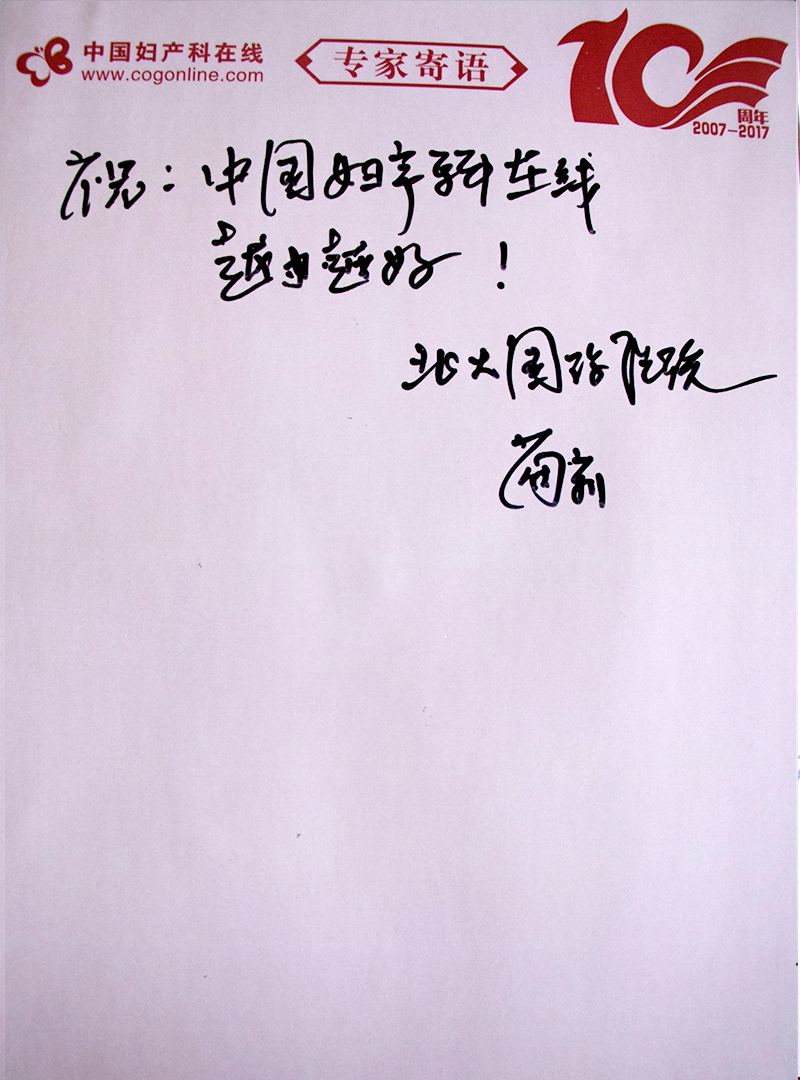 中国妇产科在线
www.cogonline.com
专家寄语
10
周年
2007-2017
祝：中国妇产科在线
越办越好！
北大国际医院